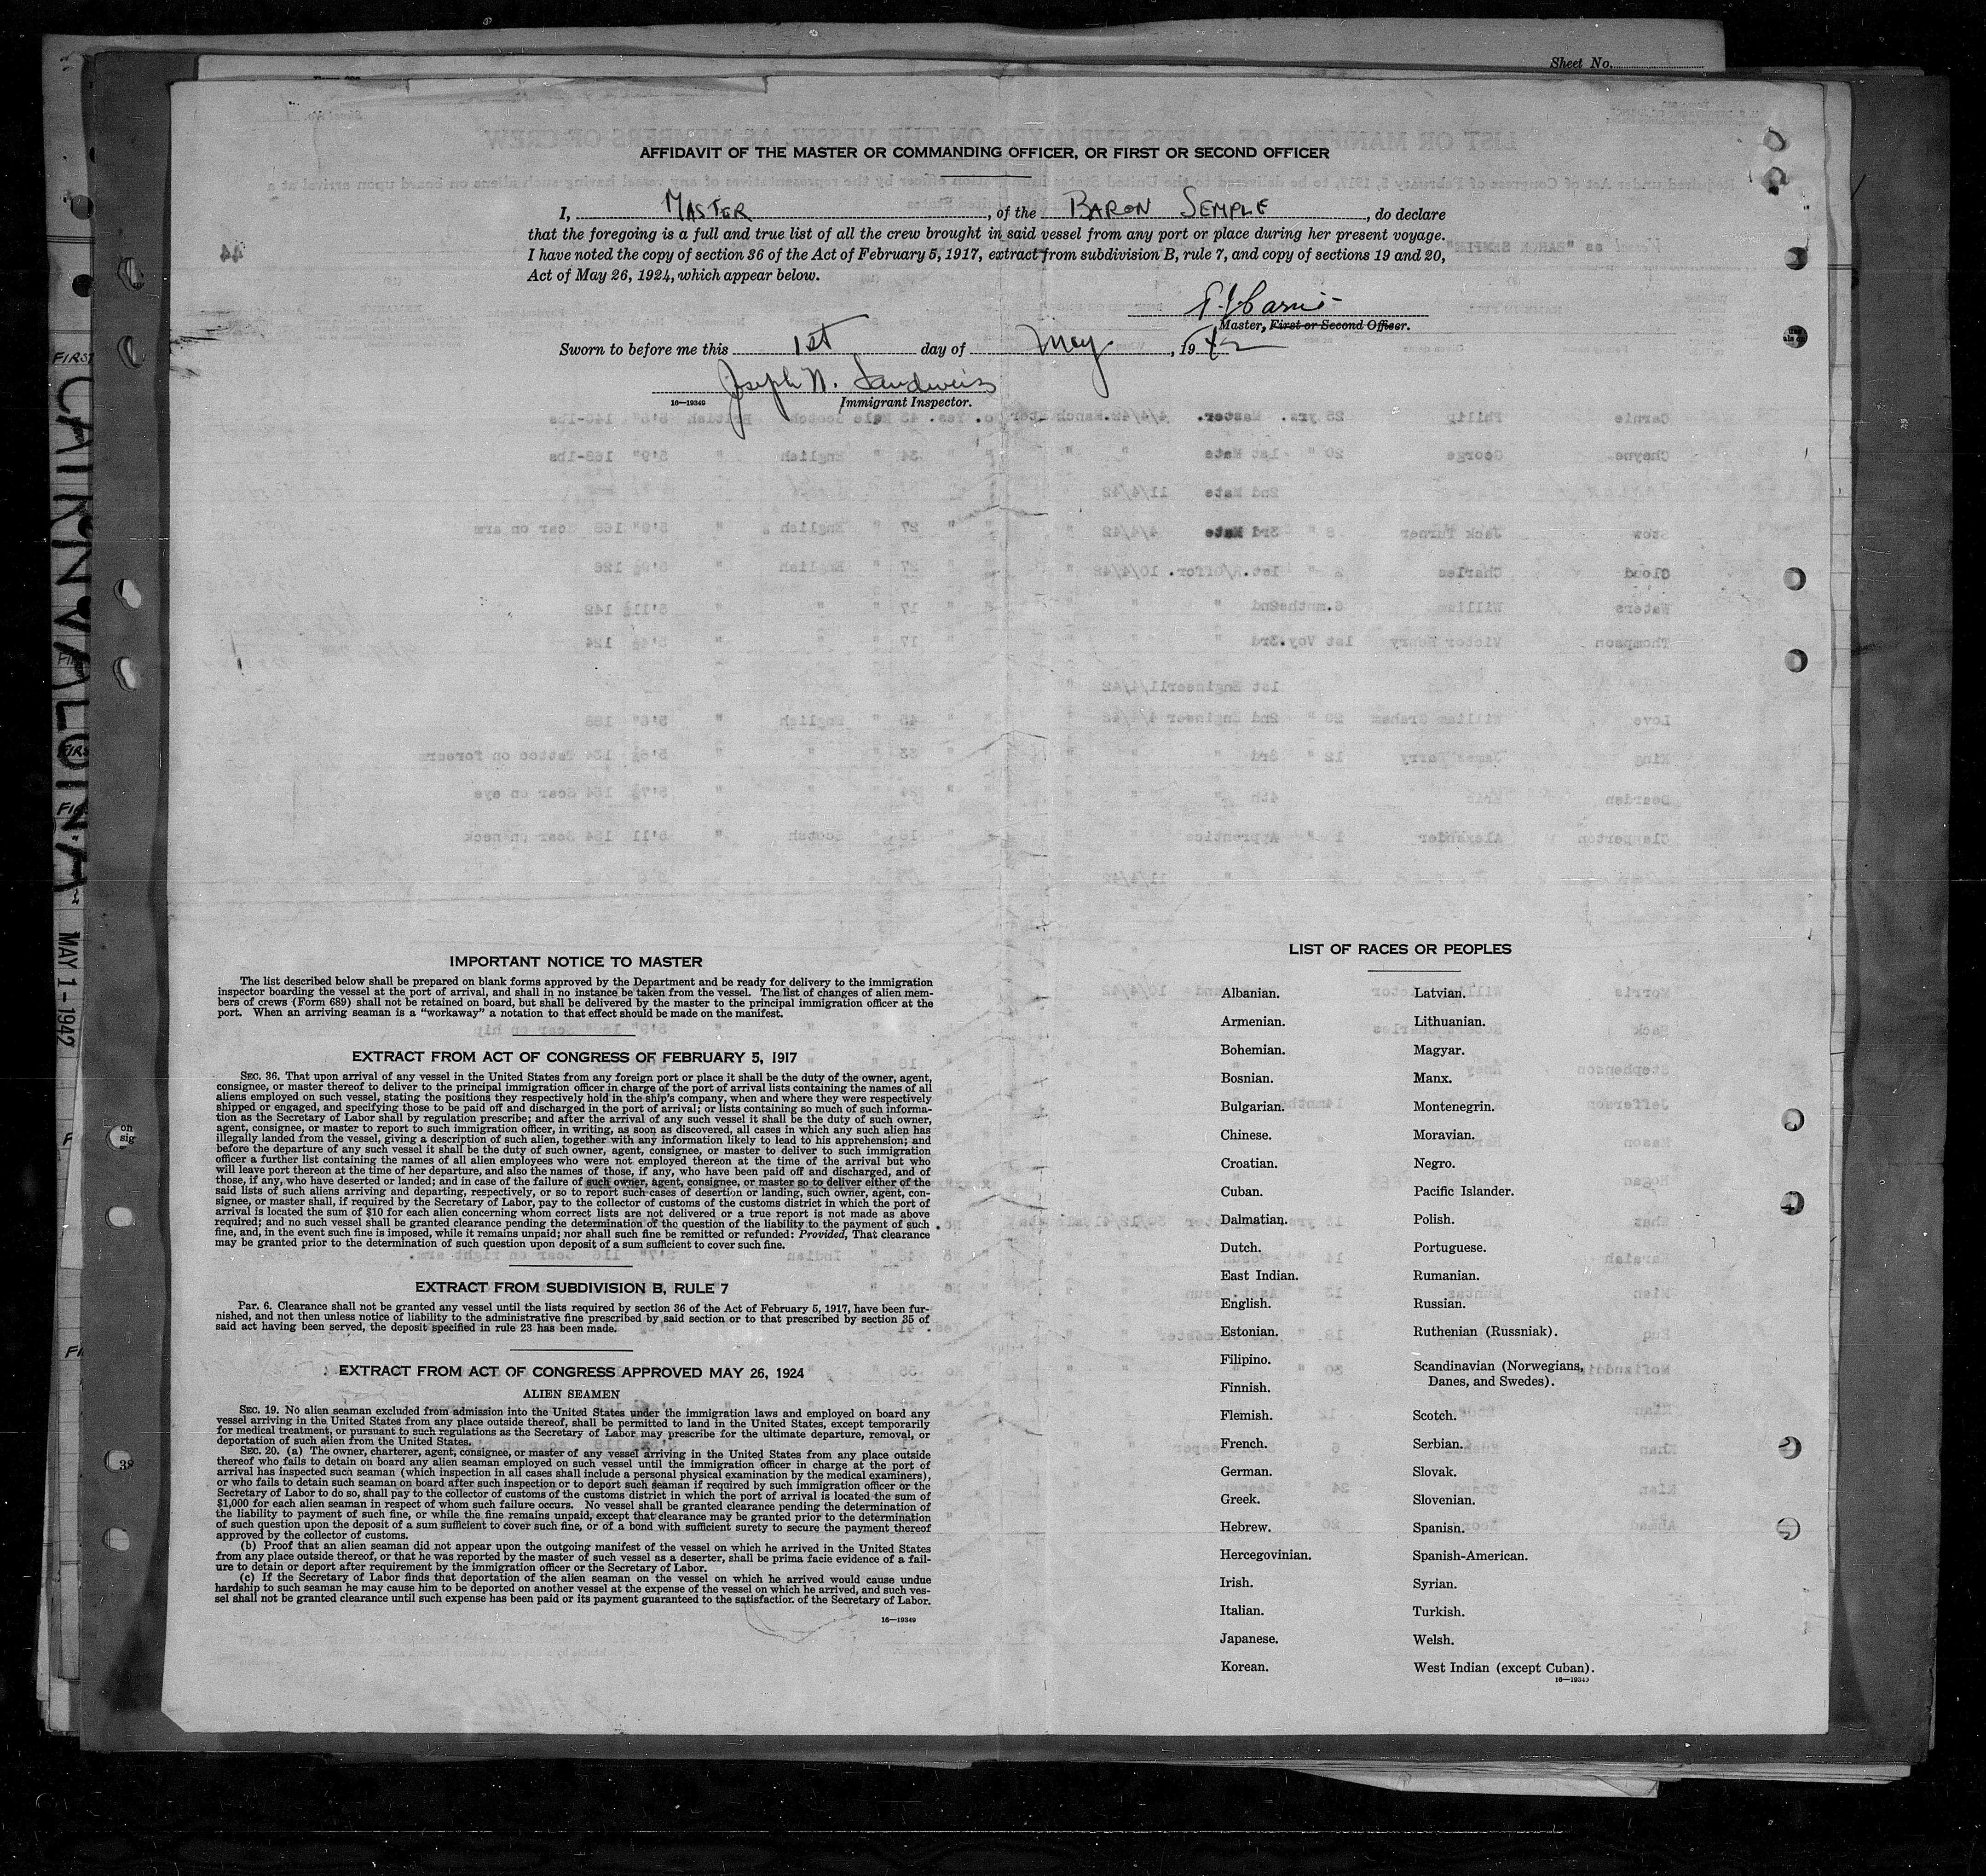 Sheet No.
AFFIDAVIT OF THE MASTER OR COMMANDING OFFICER, OR FIRST OR SECOND OFFICER
I, MASTER, of the BARON SEMPLE, do declare
that the foregoing is a full and true list of all the crew brought in said vessel from any port or place during her present voyage.
I have noted the copy of section 36 of the Act of February 5, 1917, extract from subdivision B, rule 7, and copy of sections 19 and 20,
Act of May 26, 1924, which appear below.
Master, First or Second Officer.
Sworn to before me this 1st day of May, 1942
Joseph N. Landweis
16—19349 Immigrant Inspector.
CAIRNVALONA
MAY 1-1942
IMPORTANT NOTICE TO MASTER
The list described below shall be prepared on blank forms approved by the Department and be ready for delivery to the immigration
inspector boarding the vessel at the port of arrival, and shall in no instance be taken from the vessel. The list of changes of alien mem-
bers of crews (Form 689) shall not be retained on board, but shall be delivered by the master to the principal immigration officer at the
port. When an arriving seaman is a "workaway" a notation to that effect should be made on the manifest.
EXTRACT FROM ACT OF CONGRESS OF FEBRUARY 5, 1917
SEC. 36. That upon arrival of any vessel in the United States from any foreign port or place it shall be the duty of the owner, agent,
consignee, or master thereof to deliver to the principal immigration officer in charge of the port of arrival lists containing the names of all
aliens employed on such vessel, stating the positions they respectively hold in the ship's company, when and where they were respectively
shipped or engaged, and specifying those to be paid off and discharged in the port of arrival; or lists containing so much of such informa-
tion as the Secretary of Labor shall by regulation prescribe; and after the arrival of any such vessel it shall be the duty of such owner,
agent, consignee, or master to report to such immigration officer, in writing, as soon as discovered, all cases in which any such alien has
illegally landed from the vessel, giving a description of such alien, together with any information likely to lead to his apprehension; and
before the departure of any such vessel it shall be the duty of such owner, agent, consignee, or master to deliver to such immigration
officer a further list containing the names of all alien employees who were not employed thereon at the time of the arrival but who
will leave port thereon at the time of her departure, and also the names of those, if any, who have been paid off and discharged, and of
those, if any, who have deserted or landed; and in case of the failure of such owner, agent, consignee, or master so to deliver either of the
said lists of such aliens arriving and departing, respectively, or so to report such cases of desertion or landing, such owner, agent, con-
signee, or master shall, if required by the Secretary of Labor, pay to the collector of customs of the customs district in which the port of
arrival is located the sum of $10 for each alien concerning whom correct lists are not delivered or a true report is not made as above
required; and no such vessel shall be granted clearance pending the determination of the question of the liability to the payment of such
fine, and, in the event such fine is imposed, while it remains unpaid; nor shall such fine be remitted or refunded: Provided, That clearance
may be granted prior to the determination of such question upon deposit of a sum sufficient to cover such fine.
EXTRACT FROM SUBDIVISION B, RULE 7
Par. 6. Clearance shall not be granted any vessel until the lists required by section 36 of the Act of February 5, 1917, have been fur-
nished, and not then unless notice of liability to the administrative fine prescribed by said section or to that prescribed by section 35 of
said act having been served, the deposit specified in rule 23 has been made.
EXTRACT FROM ACT OF CONGRESS APPROVED MAY 26, 1924
ALIEN SEAMEN
SEC. 19. No alien seaman excluded from admission into the United States under the immigration laws and employed on board any
vessel arriving in the United States from any place outside thereof, shall be permitted to land in the United States, except temporarily
for medical treatment, or pursuant to such regulations as the Secretary of Labor may prescribe for the ultimate departure, removal, or
deportation of such alien from the United States.
SEC. 20. (a) The owner, charterer, agent, consignee, or master of any vessel arriving in the United States from any place outside
thereof who fails to detain on board any alien seaman employed on such vessel until the immigration officer in charge at the port of
arrival has inspected such seaman (which inspection in all cases shall include a personal physical examination by the medical examiners),
or who fails to detain such seaman on board after such inspection or to deport such seaman if required by such immigration officer or the
Secretary of Labor to do so, shall pay to the collector of customs of the customs district in which the port of arrival is located the sum of
$1,000 for each alien seaman in respect of whom such failure occurs. No vessel shall be granted clearance pending the determination of
the liability to payment of such fine, or while the fine remains unpaid, except that clearance may be granted prior to the determination
of such question upon the deposit of a sum sufficient to cover such fine, or of a bond with sufficient surety to secure the payment thereof
approved by the collector of customs.
(b) Proof that an alien seaman did not appear upon the outgoing manifest of the vessel on which he arrived in the United States
from any place outside thereof, or that he was reported by the master of such vessel as a deserter, shall be prima facie evidence of a fail-
ure to detain or deport after requirement by the immigration officer or the Secretary of Labor.
(c) If the Secretary of Labor finds that deportation of the alien seaman on the vessel on which he arrived would cause undue
hardship to such seaman he may cause him to be deported on another vessel at the expense of the vessel on which he arrived, and such ves-
sel shall not be granted clearance until such expense has been paid or its payment guaranteed to the satisfaction of the Secretary of Labor.
16—19349
LIST OF RACES OR PEOPLES
Albanian.
Armenian.
Bohemian.
Bosnian.
Bulgarian.
Chinese.
Croatian.
Cuban.
Dalmatian.
Dutch.
East Indian.
English.
Estonian.
Filipino.
Finnish.
Flemish.
French.
German.
Greek.
Hebrew.
Hercegovinian.
Irish.
Italian.
Japanese.
Korean.
Latvian.
Lithuanian.
Magyar.
Manx.
Montenegrin.
Moravian.
Negro.
Pacific Islander.
Polish.
Portuguese.
Rumanian.
Russian.
Ruthenian (Russniak).
Scandinavian (Norwegians,
Danes, and Swedes).
Scotch.
Serbian.
Slovak.
Slovenian.
Spanish.
Spanish-American.
Syrian.
Turkish.
Welsh.
West Indian (except Cuban).
16—19349